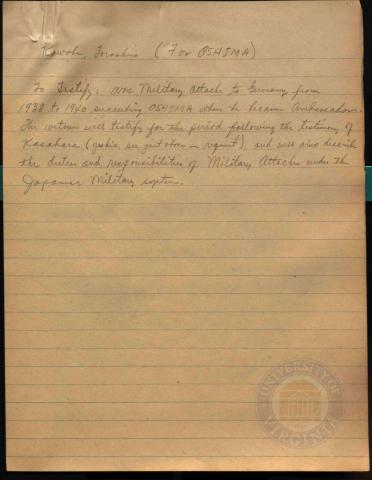 Kawabe, Torashiro (For OSHIMA)
To Testify: Was Military Attache to Germany from
1938 to 1940 succeeding OSHIMA when he became Ambassador.
The witness will testify for the period following the testimony of
Kasahara ( see just above - request), and will also describe
the duties and responsibilities of Military Attaches under the
Japanese Military system.
UNIVERSITY OF VIRGINIA